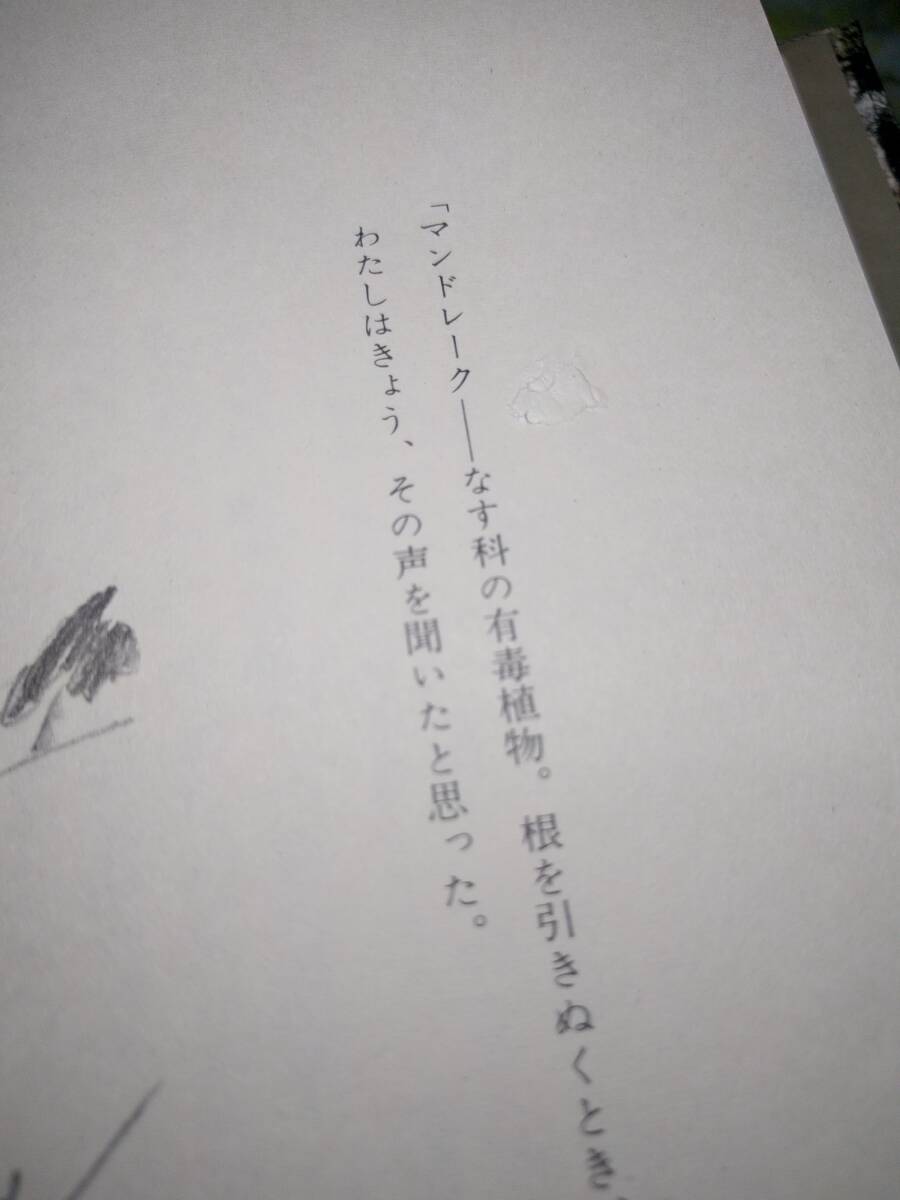 「マンドレーク――なす科の有毒植物。根を引きぬくとき、
わたしはきょう、その声を聞いたと思った。